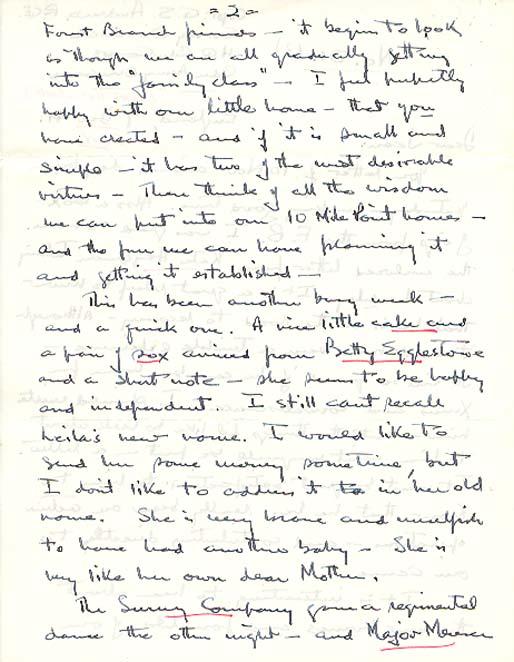 = 2 =
Forest Branch friends - it begins to look
as though we are all gradually getting
into the "family class" - I feel perfectly
happy with our little home - that you
have created - and if it is small and
simple - it has two of the most desirable
virtues - Then think of all the wisdom
we can put into our 10 Mile Point homes -
and the fun we can have planning it
and getting it established -
This has been another busy week -
and a quick one. A nice little cake and
a pair of sox arrived from Betty Egglestone
and a short note - she seems to be happy
and independent. I still cant recall
Leila's new name. I would like to
send her some money sometime, but
I don't like to address it to in her old
name. She is very brave and unselfish
to have had another baby - She is
very like her own dear Mother.
The Survey Company gave a regimental
dance the other night - and Major